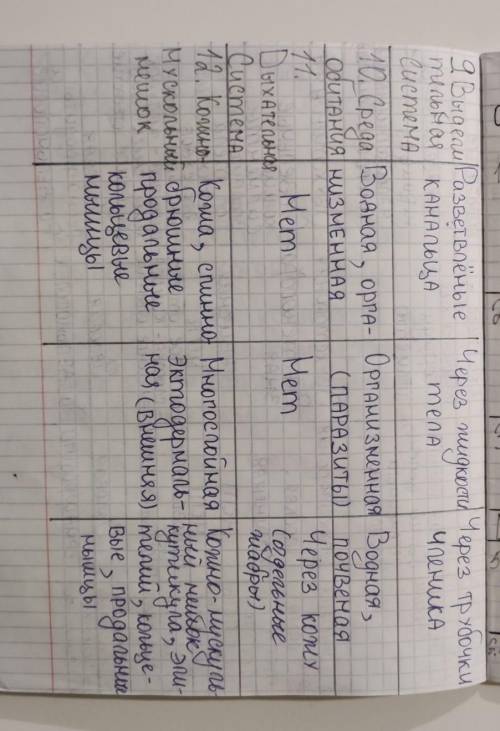 9. Выдели-
тильная
система
Разветвлёные
канальца
Через жидкости
тела
Через трубочки
членика
10. Среда
обитания
Водная, орга-
низменная
Организменная
(паразиты)
Водная,
почвеная
11.
Дыхательная
система
Нет
Нет
Через кожу
(отдельные
жабры)
12. Кожно-
мускольний
мешок
Кожа, спинно
брюшные
продальные
кольцевые
мышцы
Многослойная
эктодермаль-
ная (внешняя)
Кожно-мускуль
ний мишок
кутикула, эпи-
телий, кольце-
вые, продальные
мышцы